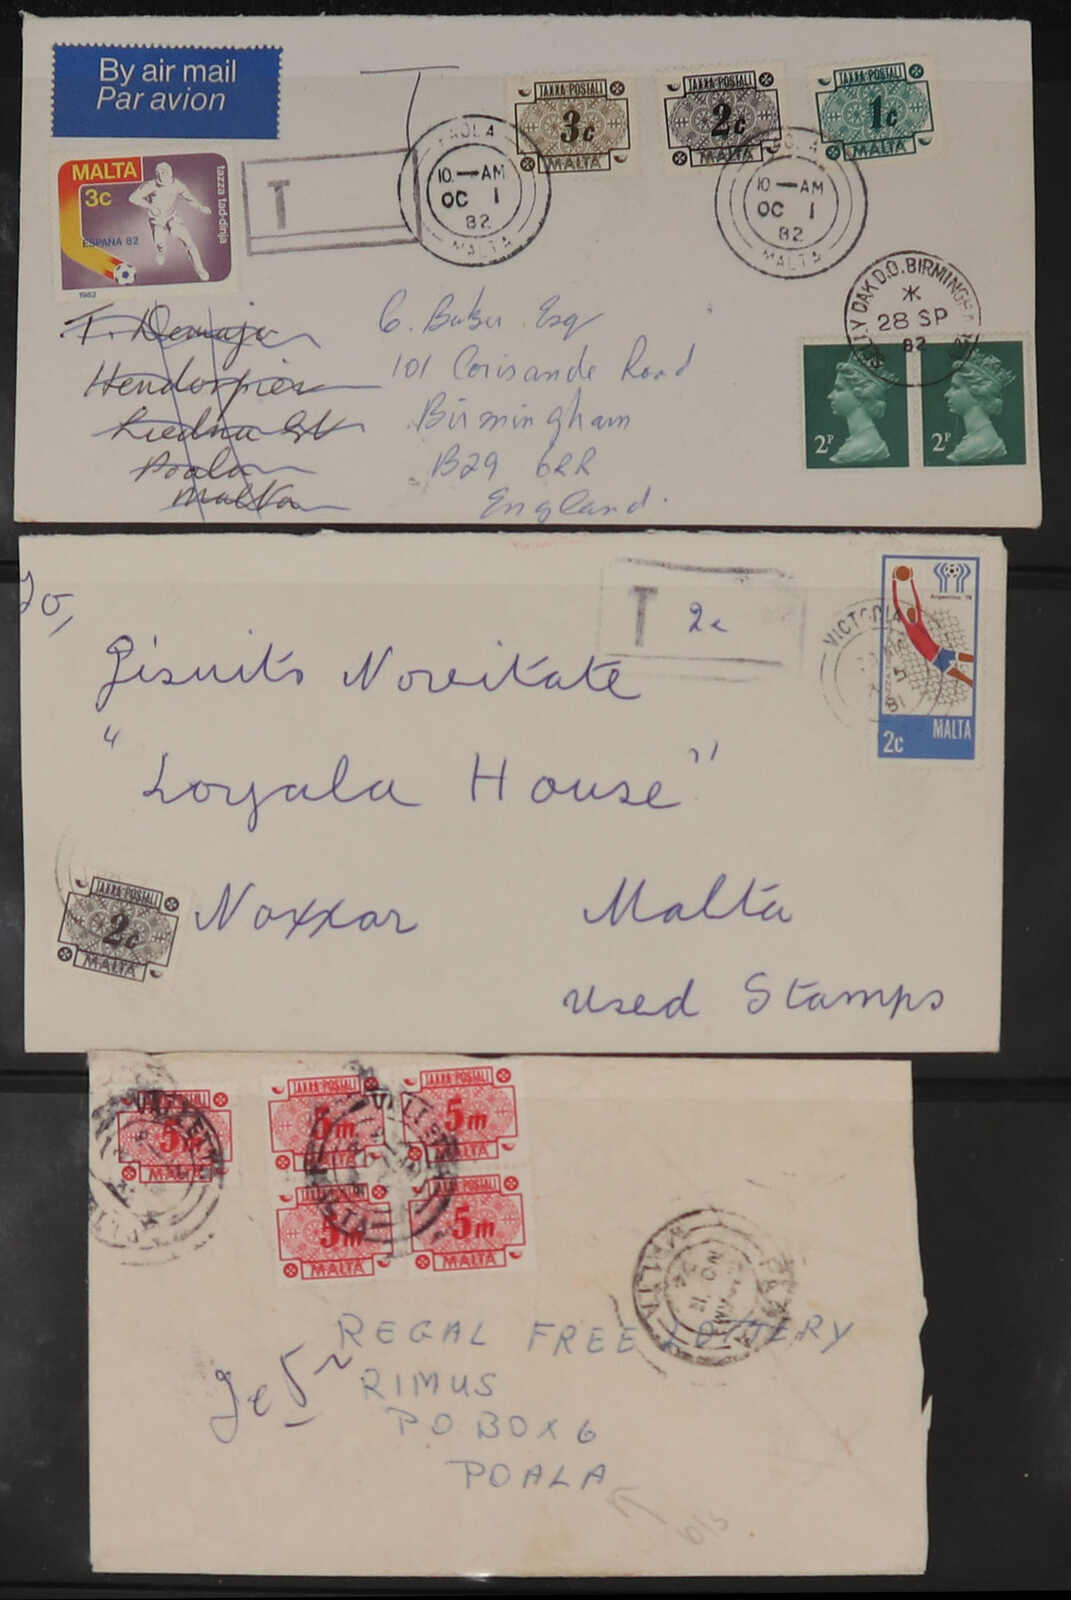 By air mail
Par avion
MALTA
3c
ESPANA 82
tazza tad-dinja
1982
T
T
PAOLA
10.—AM
OC 1
82
MALTA
TAXXA POSTALI
3c
MALTA
TAXXA POSTALI
2c
MALTA
TAXXA POSTALI
1c
MALTA
PAOLA
10—AM
OC 1
82
MALTA
SELLY OAK D.O. BIRMINGHAM
28 SP
82
2P
2P
T. Demajo
Paola
Malta
101 Corisande Road
Birmingham
B29 6RR
England.
To,
T 2c
VICTORIA
81
Argentina 78
MALTA
2c
Jisuits Novitate
"Loyala House"
Naxxar Malta
Used Stamps
TAXXA POSTALI
2c
MALTA
TAXXA POSTALI
5m
MALTA
VALLETTA
MALTA
TAXXA POSTALI
5m
MALTA
TAXXA POSTALI
5m
MALTA
TAXXA POSTALI
5m
MALTA
TAXXA POSTALI
5m
MALTA
REGAL FREE LOTTERY
RIMUS
PO BOX 6
POALA